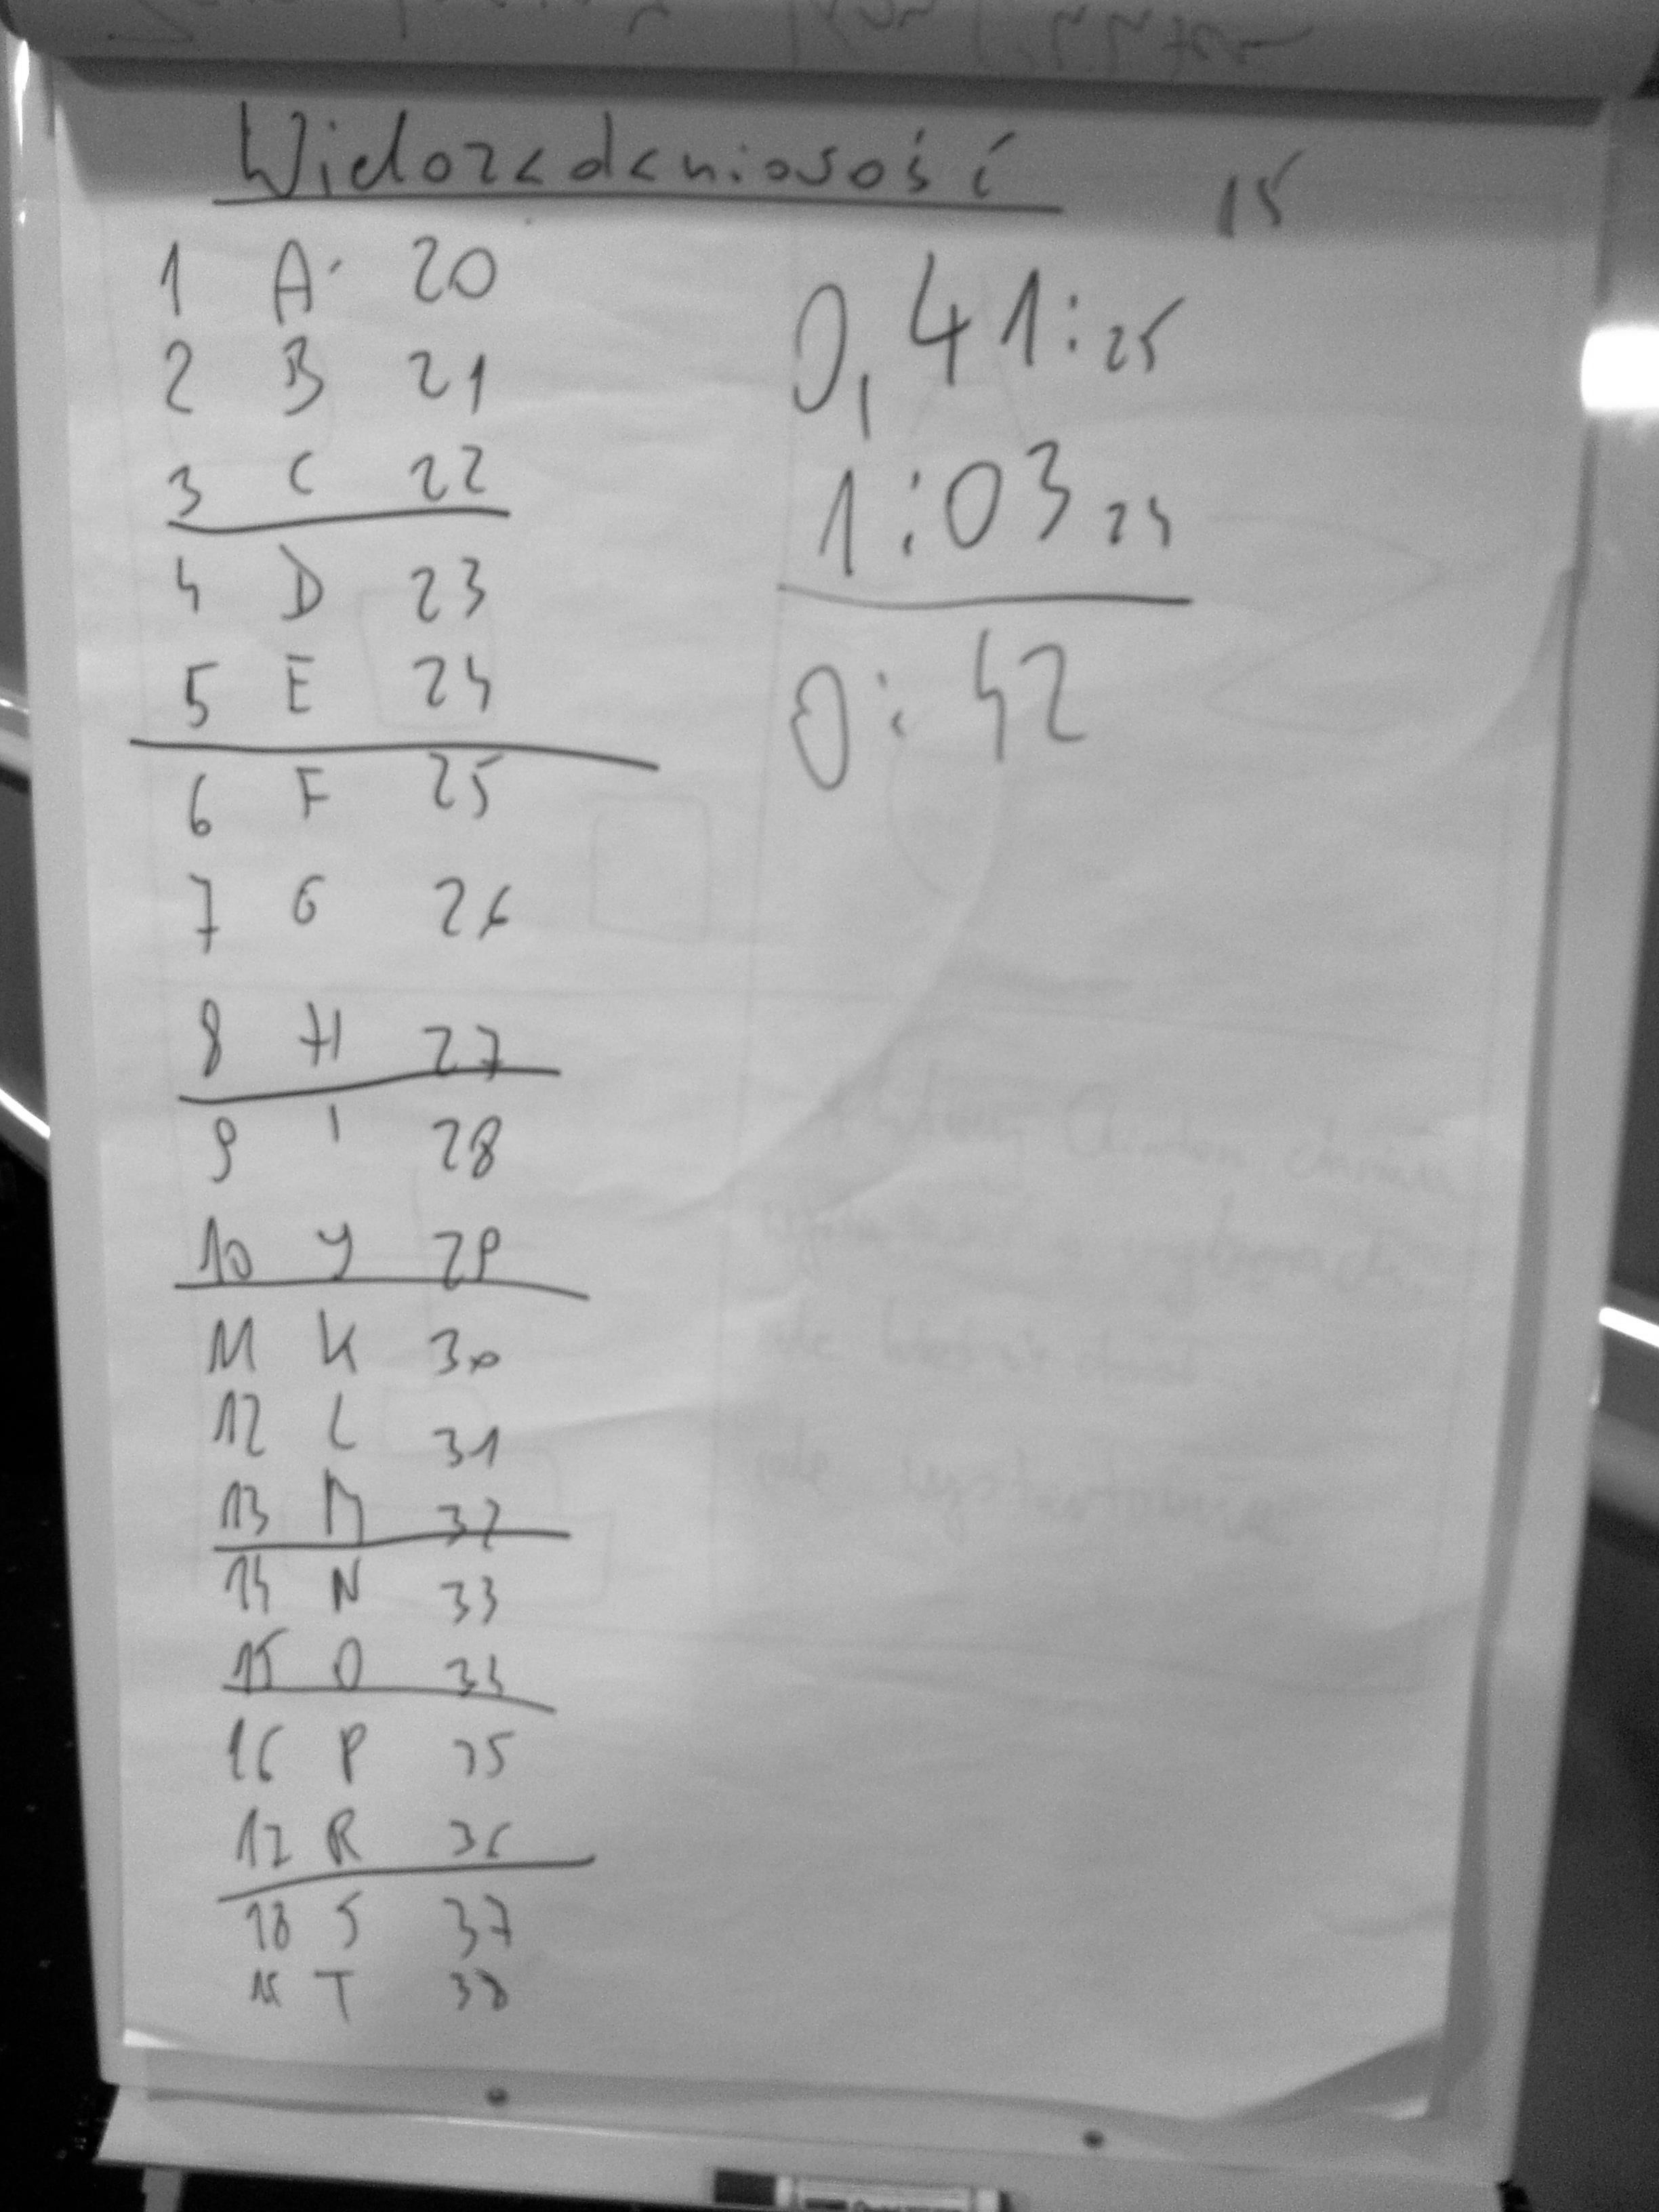 Wielozadaniosość
15
1 A 20
2 B 21
3 C 22
4 D 23
5 E 24
6 F 25
7 G 26
8 H 27
9 I 28
10 J 29
11 K 30
12 L 31
13 M 32
14 N 33
15 O 34
16 P 35
17 R 36
18 S 37
T 38
0,41:25
1:03 24
0:42